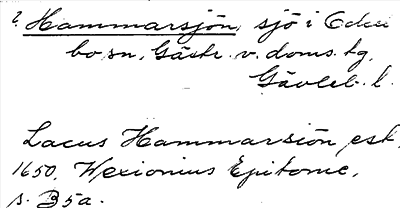 Hammarsjön, sjö i Ocke
bo sn, Gästr. v. doms. tg,
Gävleb. l.
Lacus Hammarsiön est,
1650, Wexionius Epitome,
s. B5a.